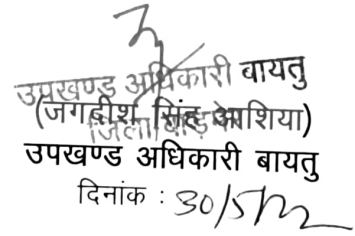 उपखण्ड अधिकारी बायतु
(जगदीश सिंह आशिया)
उपखण्ड अधिकारी बायतु
दिनांक : 30/5/